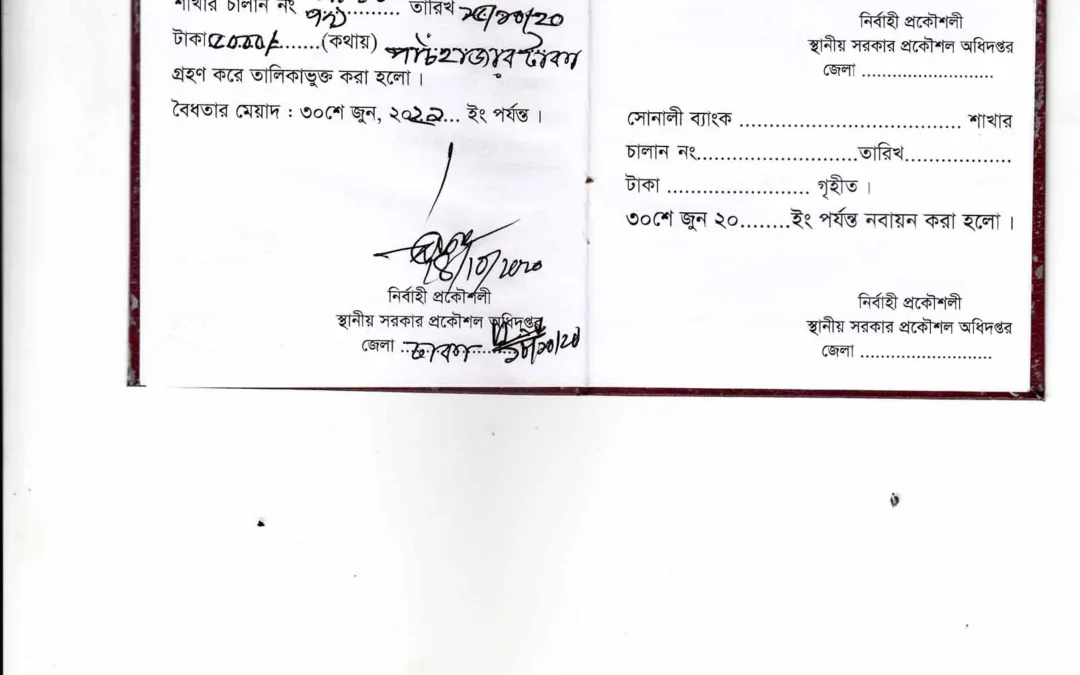 শাখার চালান নং ......... তারিখ ১৫/১০/২০
টাকা ৫০০০/-.......(কথায়) পাঁচ হাজার টাকা
গ্রহণ করে তালিকাভুক্ত করা হলো ।
বৈধতার মেয়াদ : ৩০শে জুন, ২০২১... ইং পর্যন্ত ।
18/10/2020
নির্বাহী প্রকৌশলী
স্থানীয় সরকার প্রকৌশল অধিদপ্তর
জেলা ..ঢাকা
১৮/১০/২০
নির্বাহী প্রকৌশলী
স্থানীয় সরকার প্রকৌশল অধিদপ্তর
জেলা ..........................
সোনালী ব্যাংক ...................................... শাখার
চালান নং............................তারিখ..................
টাকা ........................ গৃহীত ।
৩০শে জুন ২০........ইং পর্যন্ত নবায়ন করা হলো ।
নির্বাহী প্রকৌশলী
স্থানীয় সরকার প্রকৌশল অধিদপ্তর
জেলা ..........................